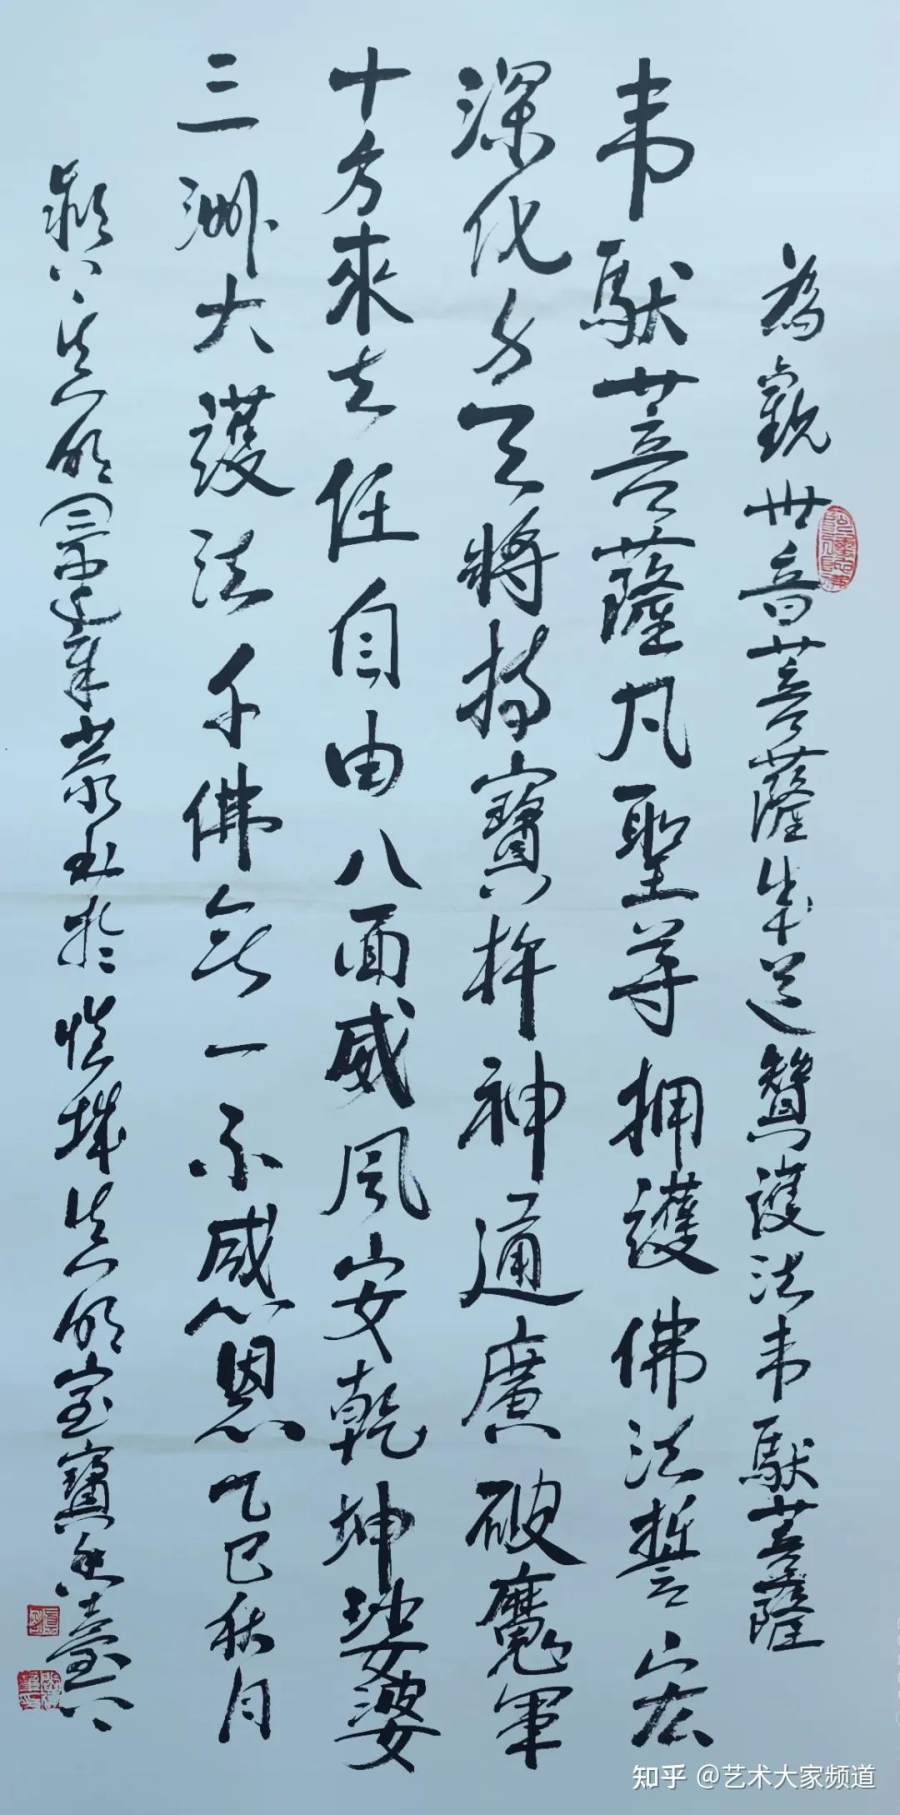 為觀世音菩薩成道贊護法韦馱菩薩
韦馱菩薩凡聖尊拥護佛法誓宏
深化身天將持寶杵神通廣破魔軍
十方來去任自由八面威風安乾坤娑婆
三洲大護法千佛無一不感恩乙巳秋月
真明周宗達章於城真明室寶香臺
知乎 @艺术大家频道